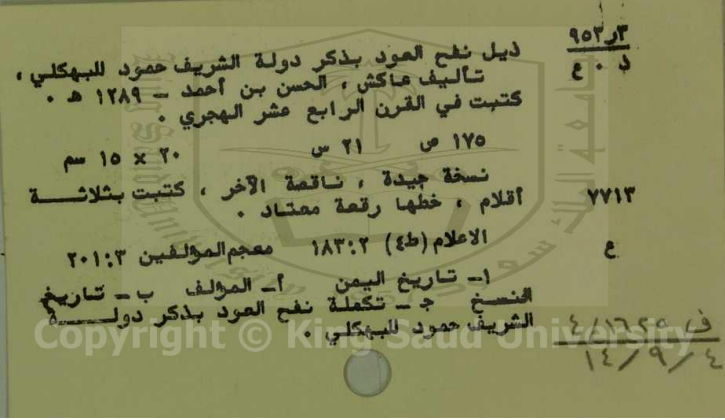 ٩٥٣٫٣
ذ ٠ ع
ذيل نفح العود بذكر دولة الشريف حمود للبهكلي ،
تأليف عاكش ، الحسن بن أحمد - ١٢٨٩ هـ ٠
كتبت في القرن الرابع عشر الهجري ٠
١٧٥ ص ٢١ س ٢٠ × ١٥ سم
نسخة جيدة ، ناقصة الآخر ، كتبت بثلاثـــة
٧٧١٣ أقلام ، خطها رقعة معتاد ٠
ع الاعلام (ط٤) ١٨٣:٢ معجم المؤلفين ٢٠١:٣
١- تاريخ اليمن أ- المؤلف ب- تاريخ
النسخ ج- تكملة نفح العود بذكر دولـــة
الشريف حمود للبهكلي ٠
Copyright © King Saud University
١٤/٩/٤